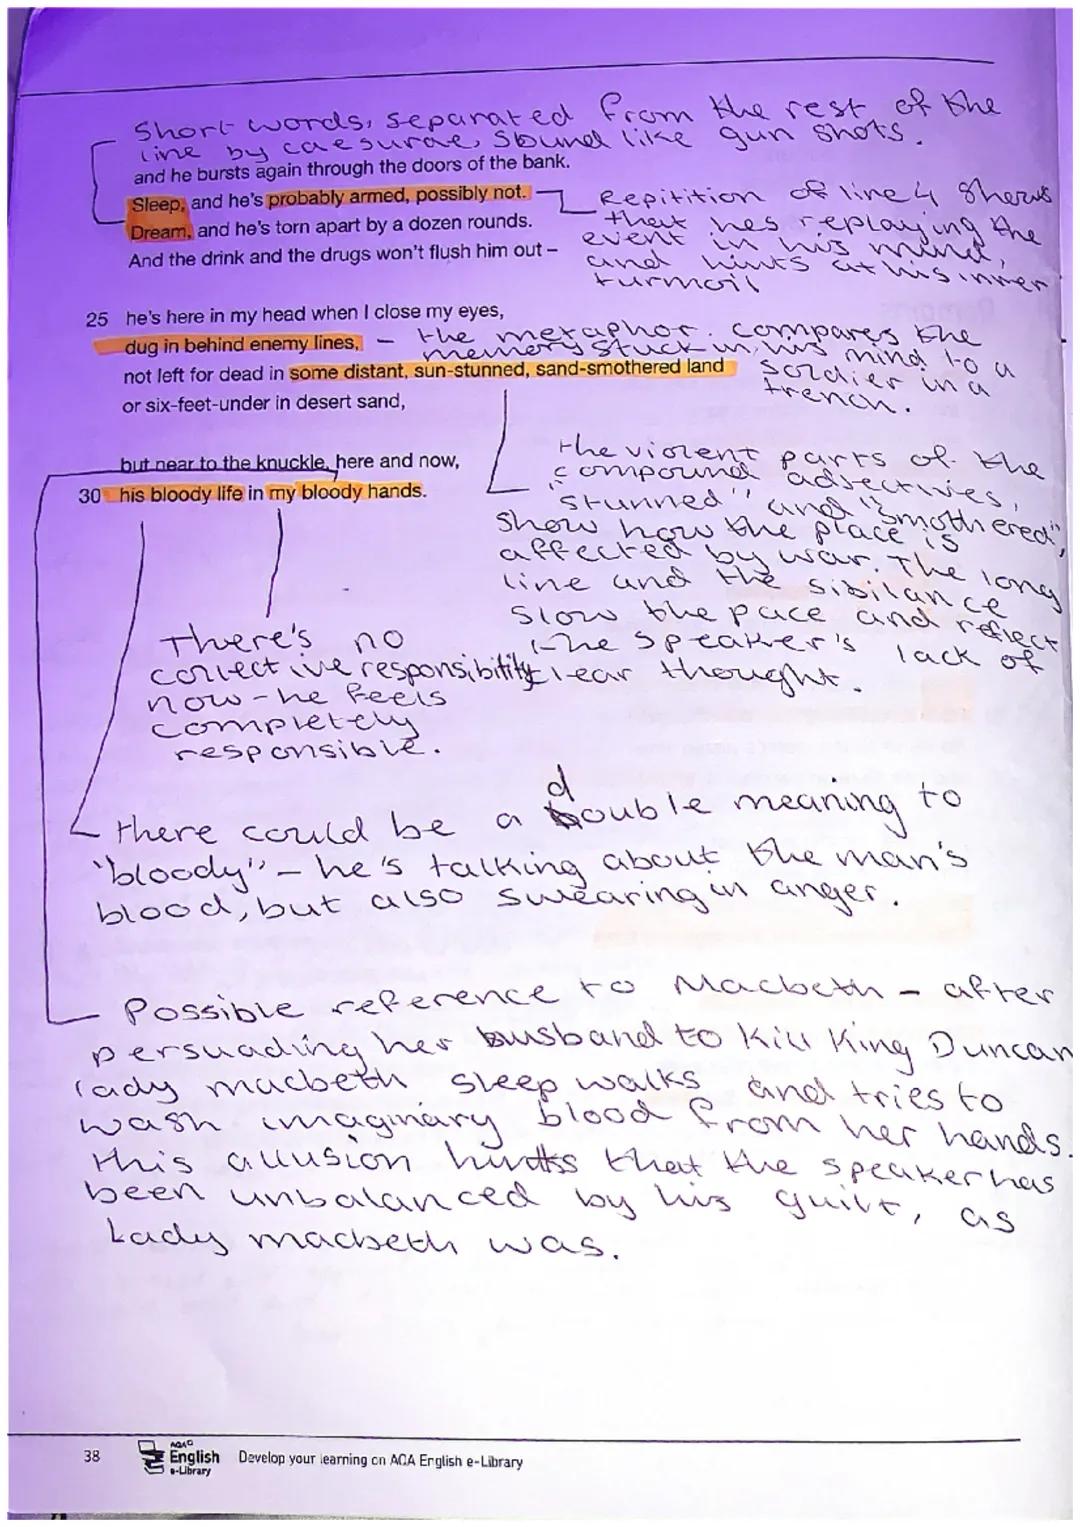 Short words, separated from the rest of the
line by caesurae, sound like gun shots.
and he bursts again through the doors of the bank.
Sleep, and he's probably armed, possibly not.
Dream, and he's torn apart by a dozen rounds.
And the drink and the drugs won't flush him out –
Repitition of line 4 shows
that hes replaying the
event in his mind,
and hints at his inner
turmoil
25 he's here in my head when I close my eyes,
dug in behind enemy lines,
not left for dead in some distant, sun-stunned, sand-smothered land
or six-feet-under in desert sand,
- the metaphor. compares the
memory stuck in his mind to a
soldier in a
trench.
but near to the knuckle, here and now,
30 his bloody life in my bloody hands.
the violent parts of the
compound adjectives,
"stunned" and "smothered",
show how the place is
affected by war. The long
line and the sibilance
slow the pace and reflect
the speaker's lack of
clear thought.
There's no
collective responsibility
now - he feels
completely
responsible.
there could be a double meaning to
"bloody" - he's talking about the man's
blood, but also swearing in anger.
Possible reference to Macbeth - after
persuading her husband to kill King Duncan
lady macbeth sleep walks and tries to
wash imaginary blood from her hands.
this allusion hints that the speaker has
been unbalanced by his guilt, as
Lady macbeth was.
38
AQA
English
e-Library
Develop your learning on AQA English e-Library